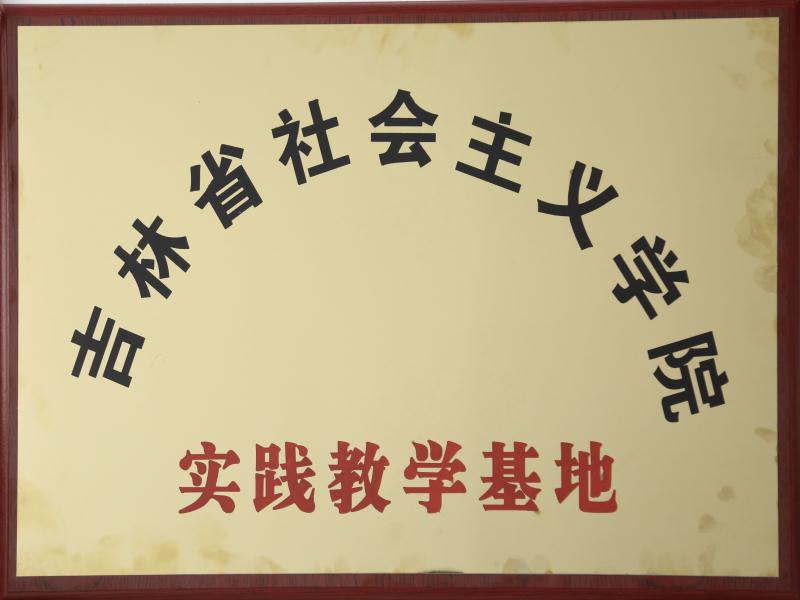 吉林省社会主义学院
实践教学基地